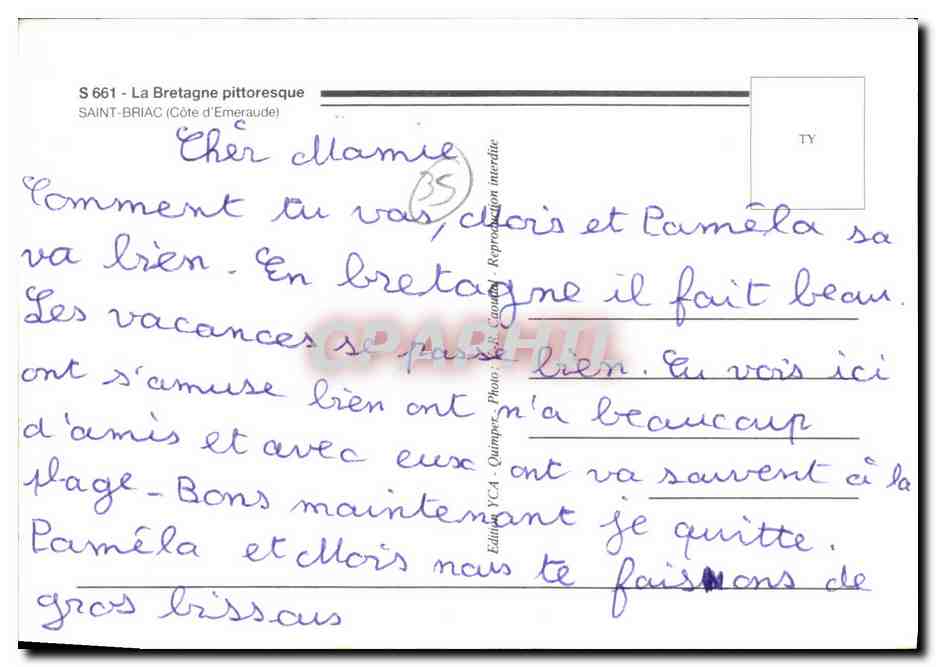 S 661 - La Bretagne pittoresque
SAINT-BRIAC (Côte d'Emeraude)
TY
Chèr Mamie
35
Comment tu vas, Mois et Pamêla sa
va bien. En bretagne il fait beau.
Les vacances se passe bien. Tu vois ici
ont s'amuse bien ont n'a beaucoup
d'amis et avec eux ont va sauvent à la
plage - Bons maintenant je quitte.
Pamêla et Mois nous te faisons de
gros bissous
Edition YCA - Quimper - Photo : R. Caoudal - Reproduction interdite
CPAPHIL